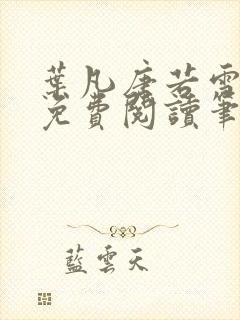 葉凡唐若雪
免費閱讀筆
藍雲天